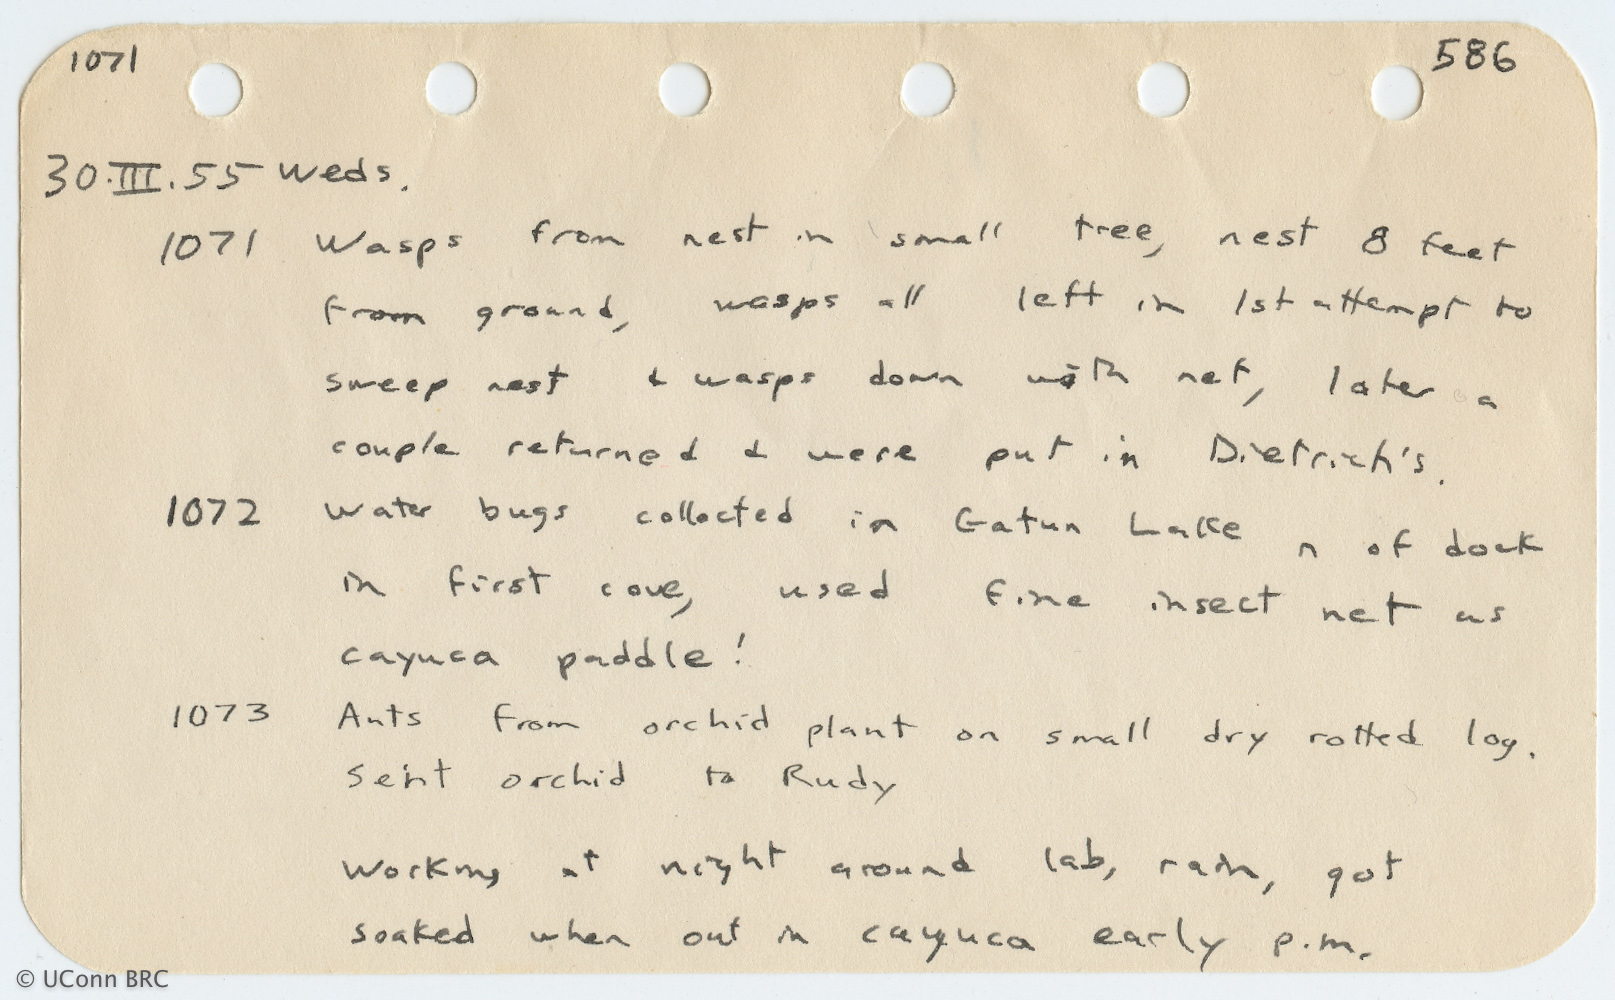 1071 586
30.III.55 Weds.
1071 Wasps from nest in small tree, nest 8 feet
from ground, wasps all left in 1st attempt to
sweep nest & wasps down with net, later a
couple returned & were put in Dietrich's.
1072 Water bugs collected in Gatun Lake n of dock
in first cove, used fine insect net as
cayuca paddle!
1073 Ants from orchid plant on small dry rotted log.
Sent orchid to Rudy
Working at night around lab, rain, got
soaked when out in cayuca early p.m.
© UConn BRC